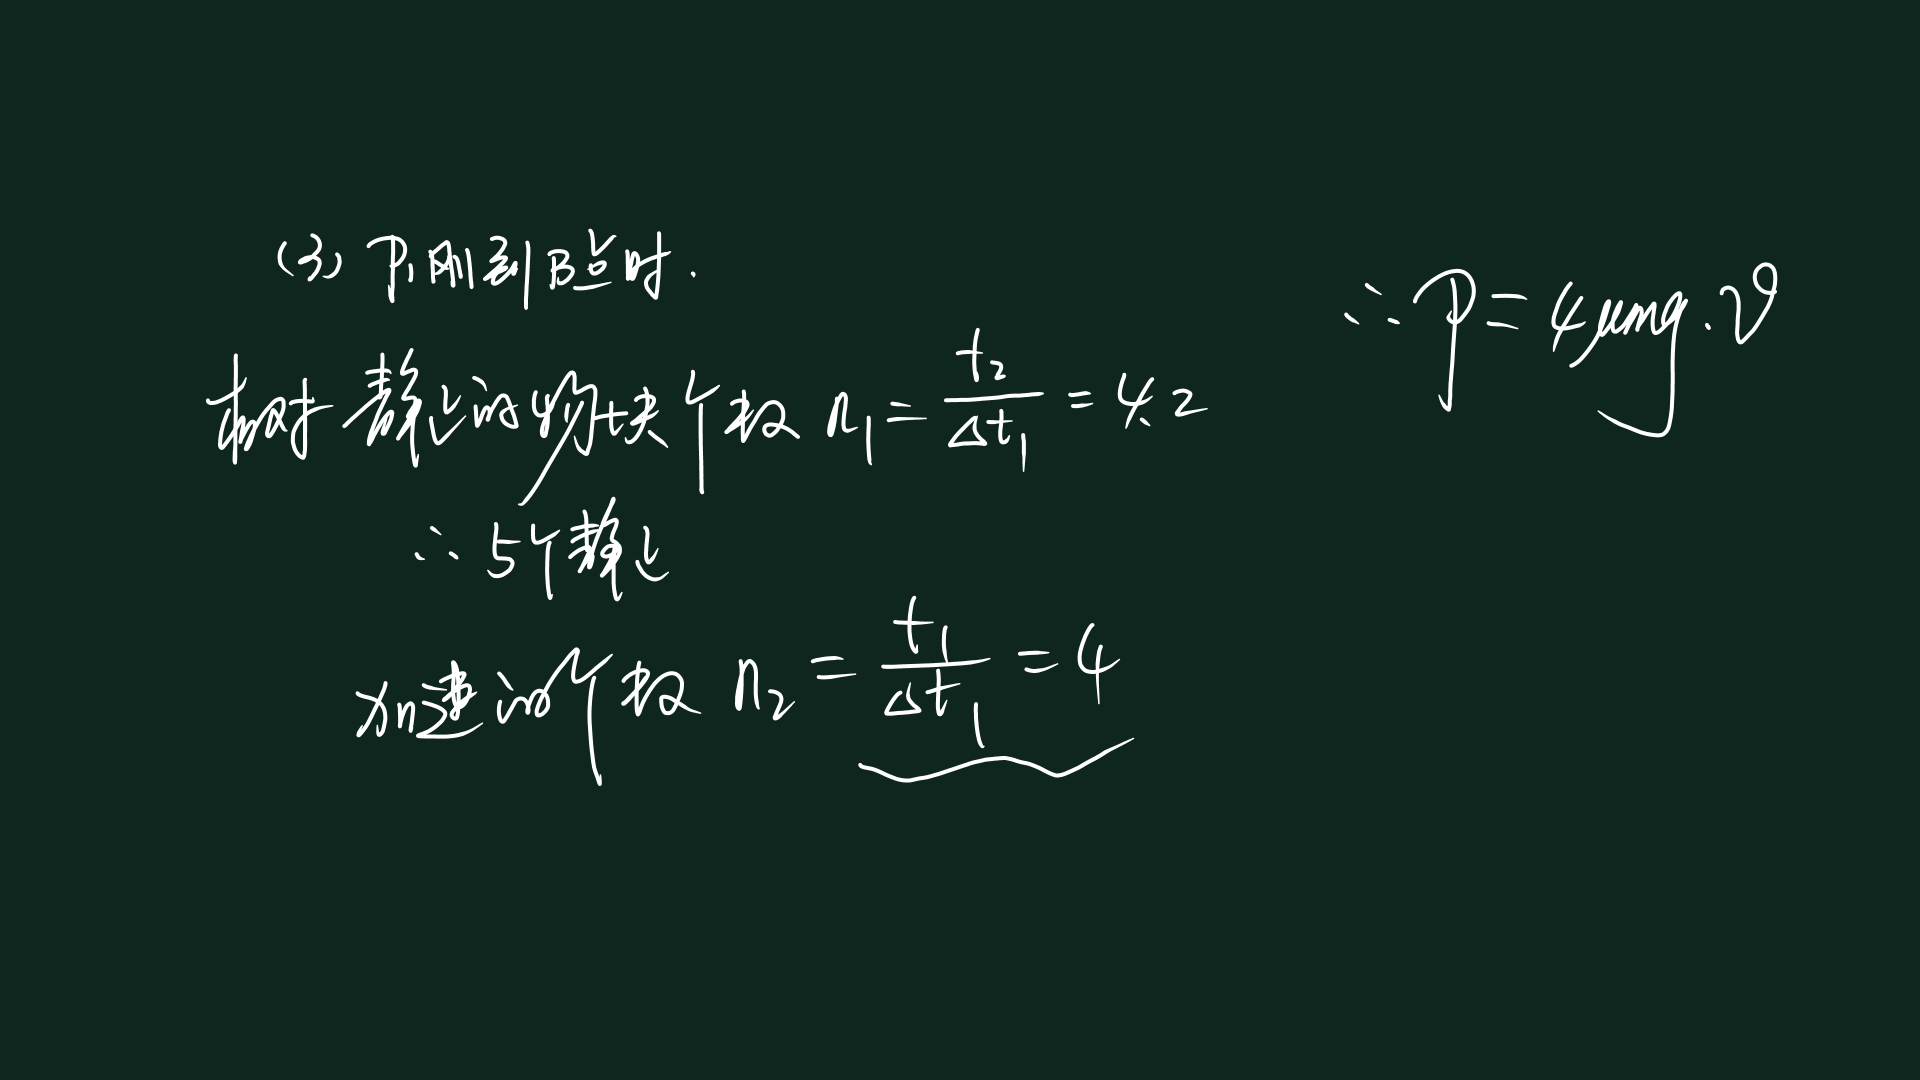 (3) P₁刚到B点时.
相对静止的物块个数 n₁ = t₂/Δt₁ = 4.2
∴ 5个静止
加速的个数 n₂ = t₁/Δt₁ = 4
∴ P = 4μmg.v